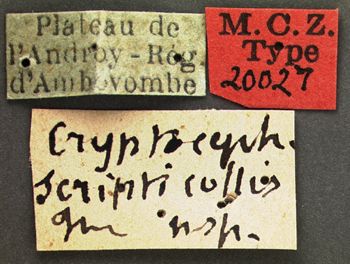 Plateau de
l'Androy - Rég.
d'Ambovombe
M.C.Z.
Type
20027
Cryptoceph.
scripticollis
n sp.